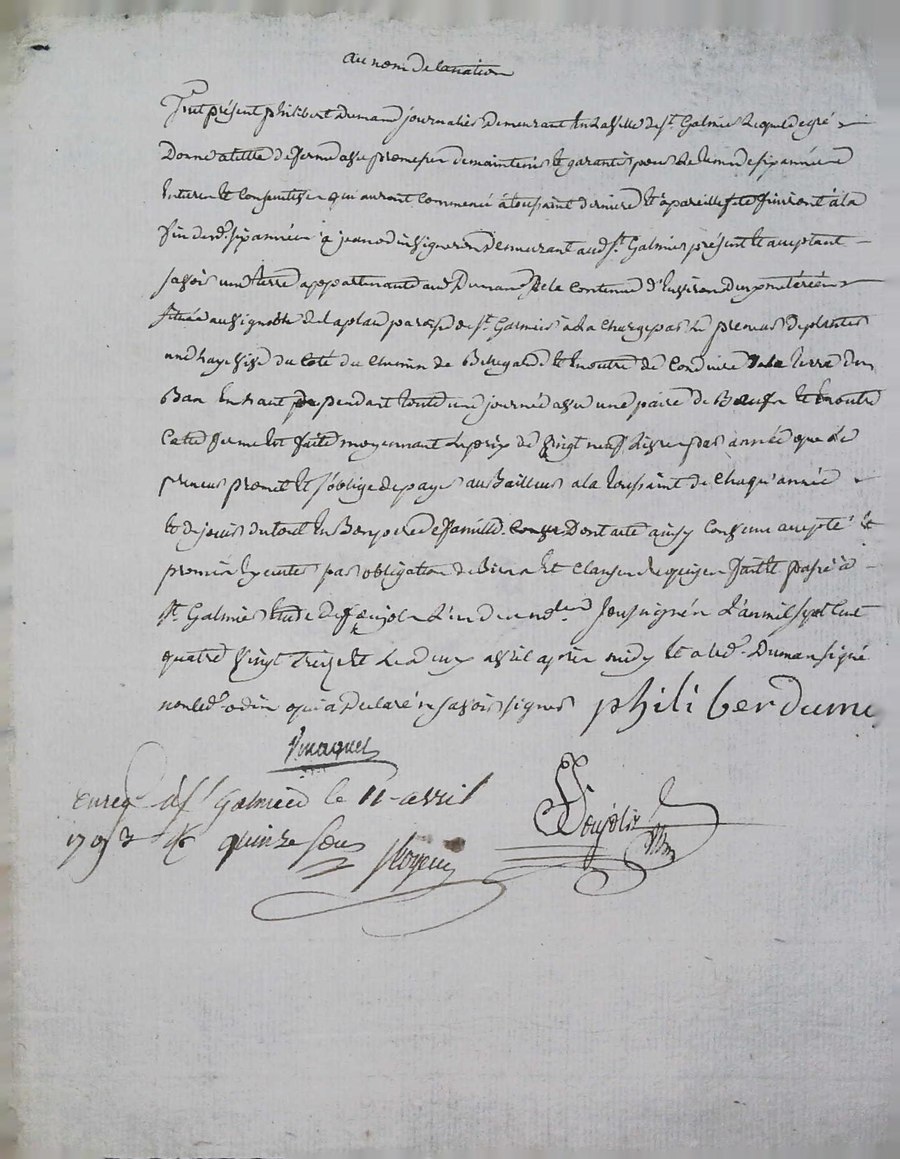 au nom de la nation
fut présent philibert Dumand journalier demeurant en la ville de st. Galmier lequel de gré
Donne a titre de ferme avec promesse de maintenir et garantir pour le terme de six années
entieres et consecutives qui auront commencé à toussaint derniere et à pareille fete finiront à la
fin desd. six années a jean odin vigneron demeurant aud. st. Galmier présent et aceptant
savoir une terre appartenant aud Dumand de la contenue d'environ deux meterées
située au vignoble de la plan paroisse de st. Galmier a la charge par le preneur de planter
une haye vive du coté du chemin de Bellegarde et en outre de conduire de la terre d'un
Ban en haut pendant toute une journée avec une paire de Bœufs et en outre
cette ferme est faite moyennant le prix de vingt neuf livres par année que le
preneur promet et s'oblige de payer au Bailleur a la toussaint de chaqu'année
et de jouir du tout en Bon pere de famille. Dont acte ainsy convenu accepté et
promis executer par obligation de biens et clauses requises fait et passé à
st. Galmier etude de feujole l'un des notres. soussignés l'an mil sept cent
quatre vingt treize et le deux avril après midy et a led. Duman signé
non led. odin qui a declaré ne savoir signer philiber dumn
enregé. à st Galmier le 11 avril
1793 R quinze sous